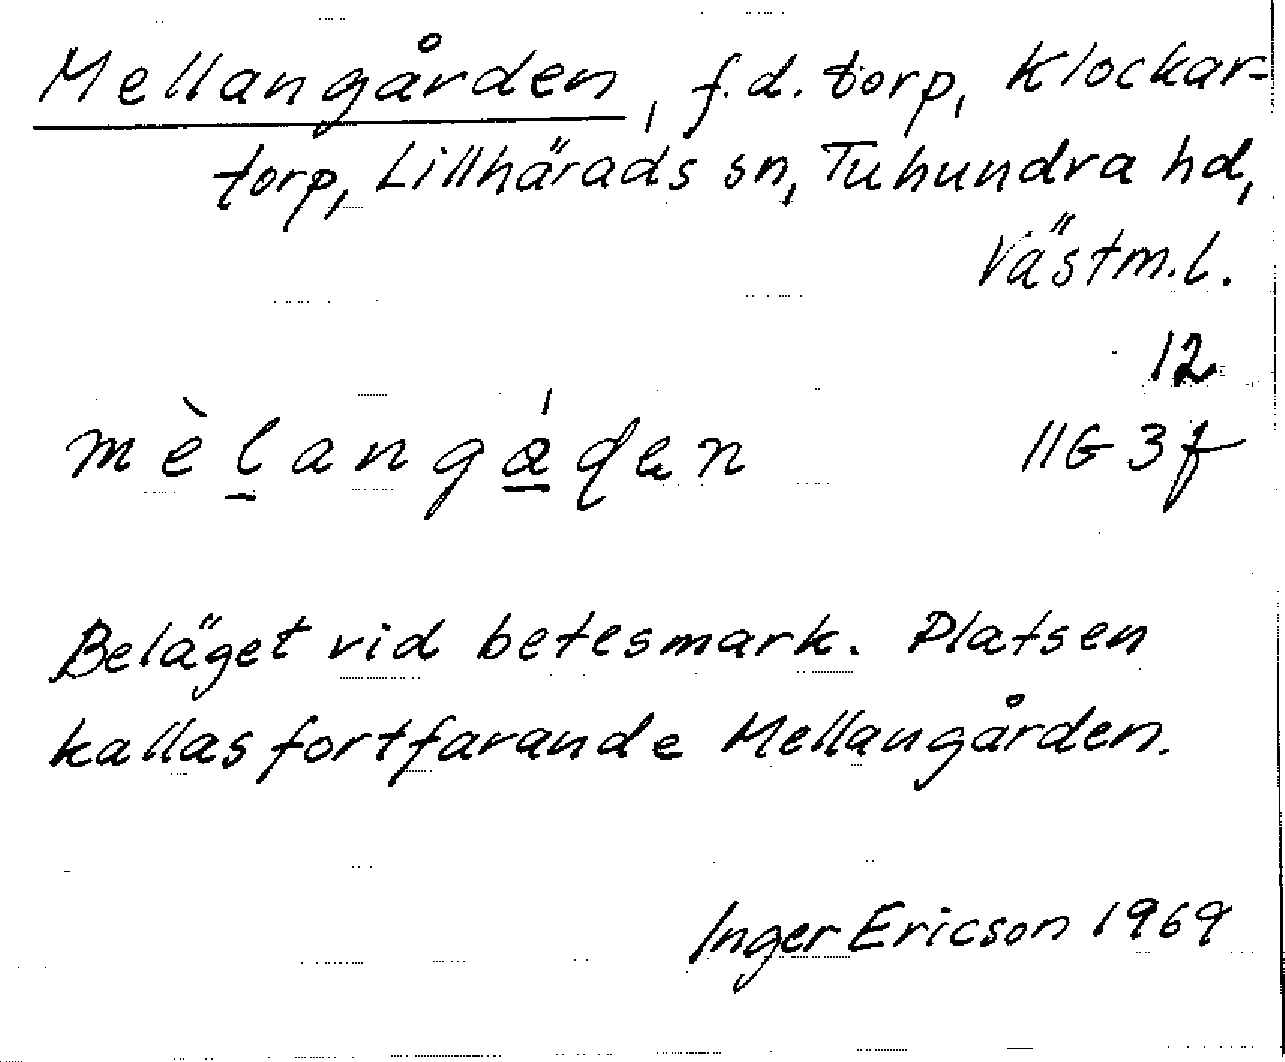 Mellangården, f.d. torp, Klockar-
torp, Lillhärads sn, Tuhundra hd,
Västm.l.
12
11G 3f
Beläget vid betesmark. Platsen
kallas fortfarande Mellangården.
Inger Ericson 1969